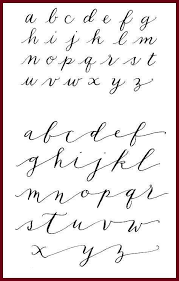 a b c d e f g
h i j k l m
n o p q r s t
u v w x y z
a b c d e f
g h i j k l
m n o p q r
s t u v w
x y z